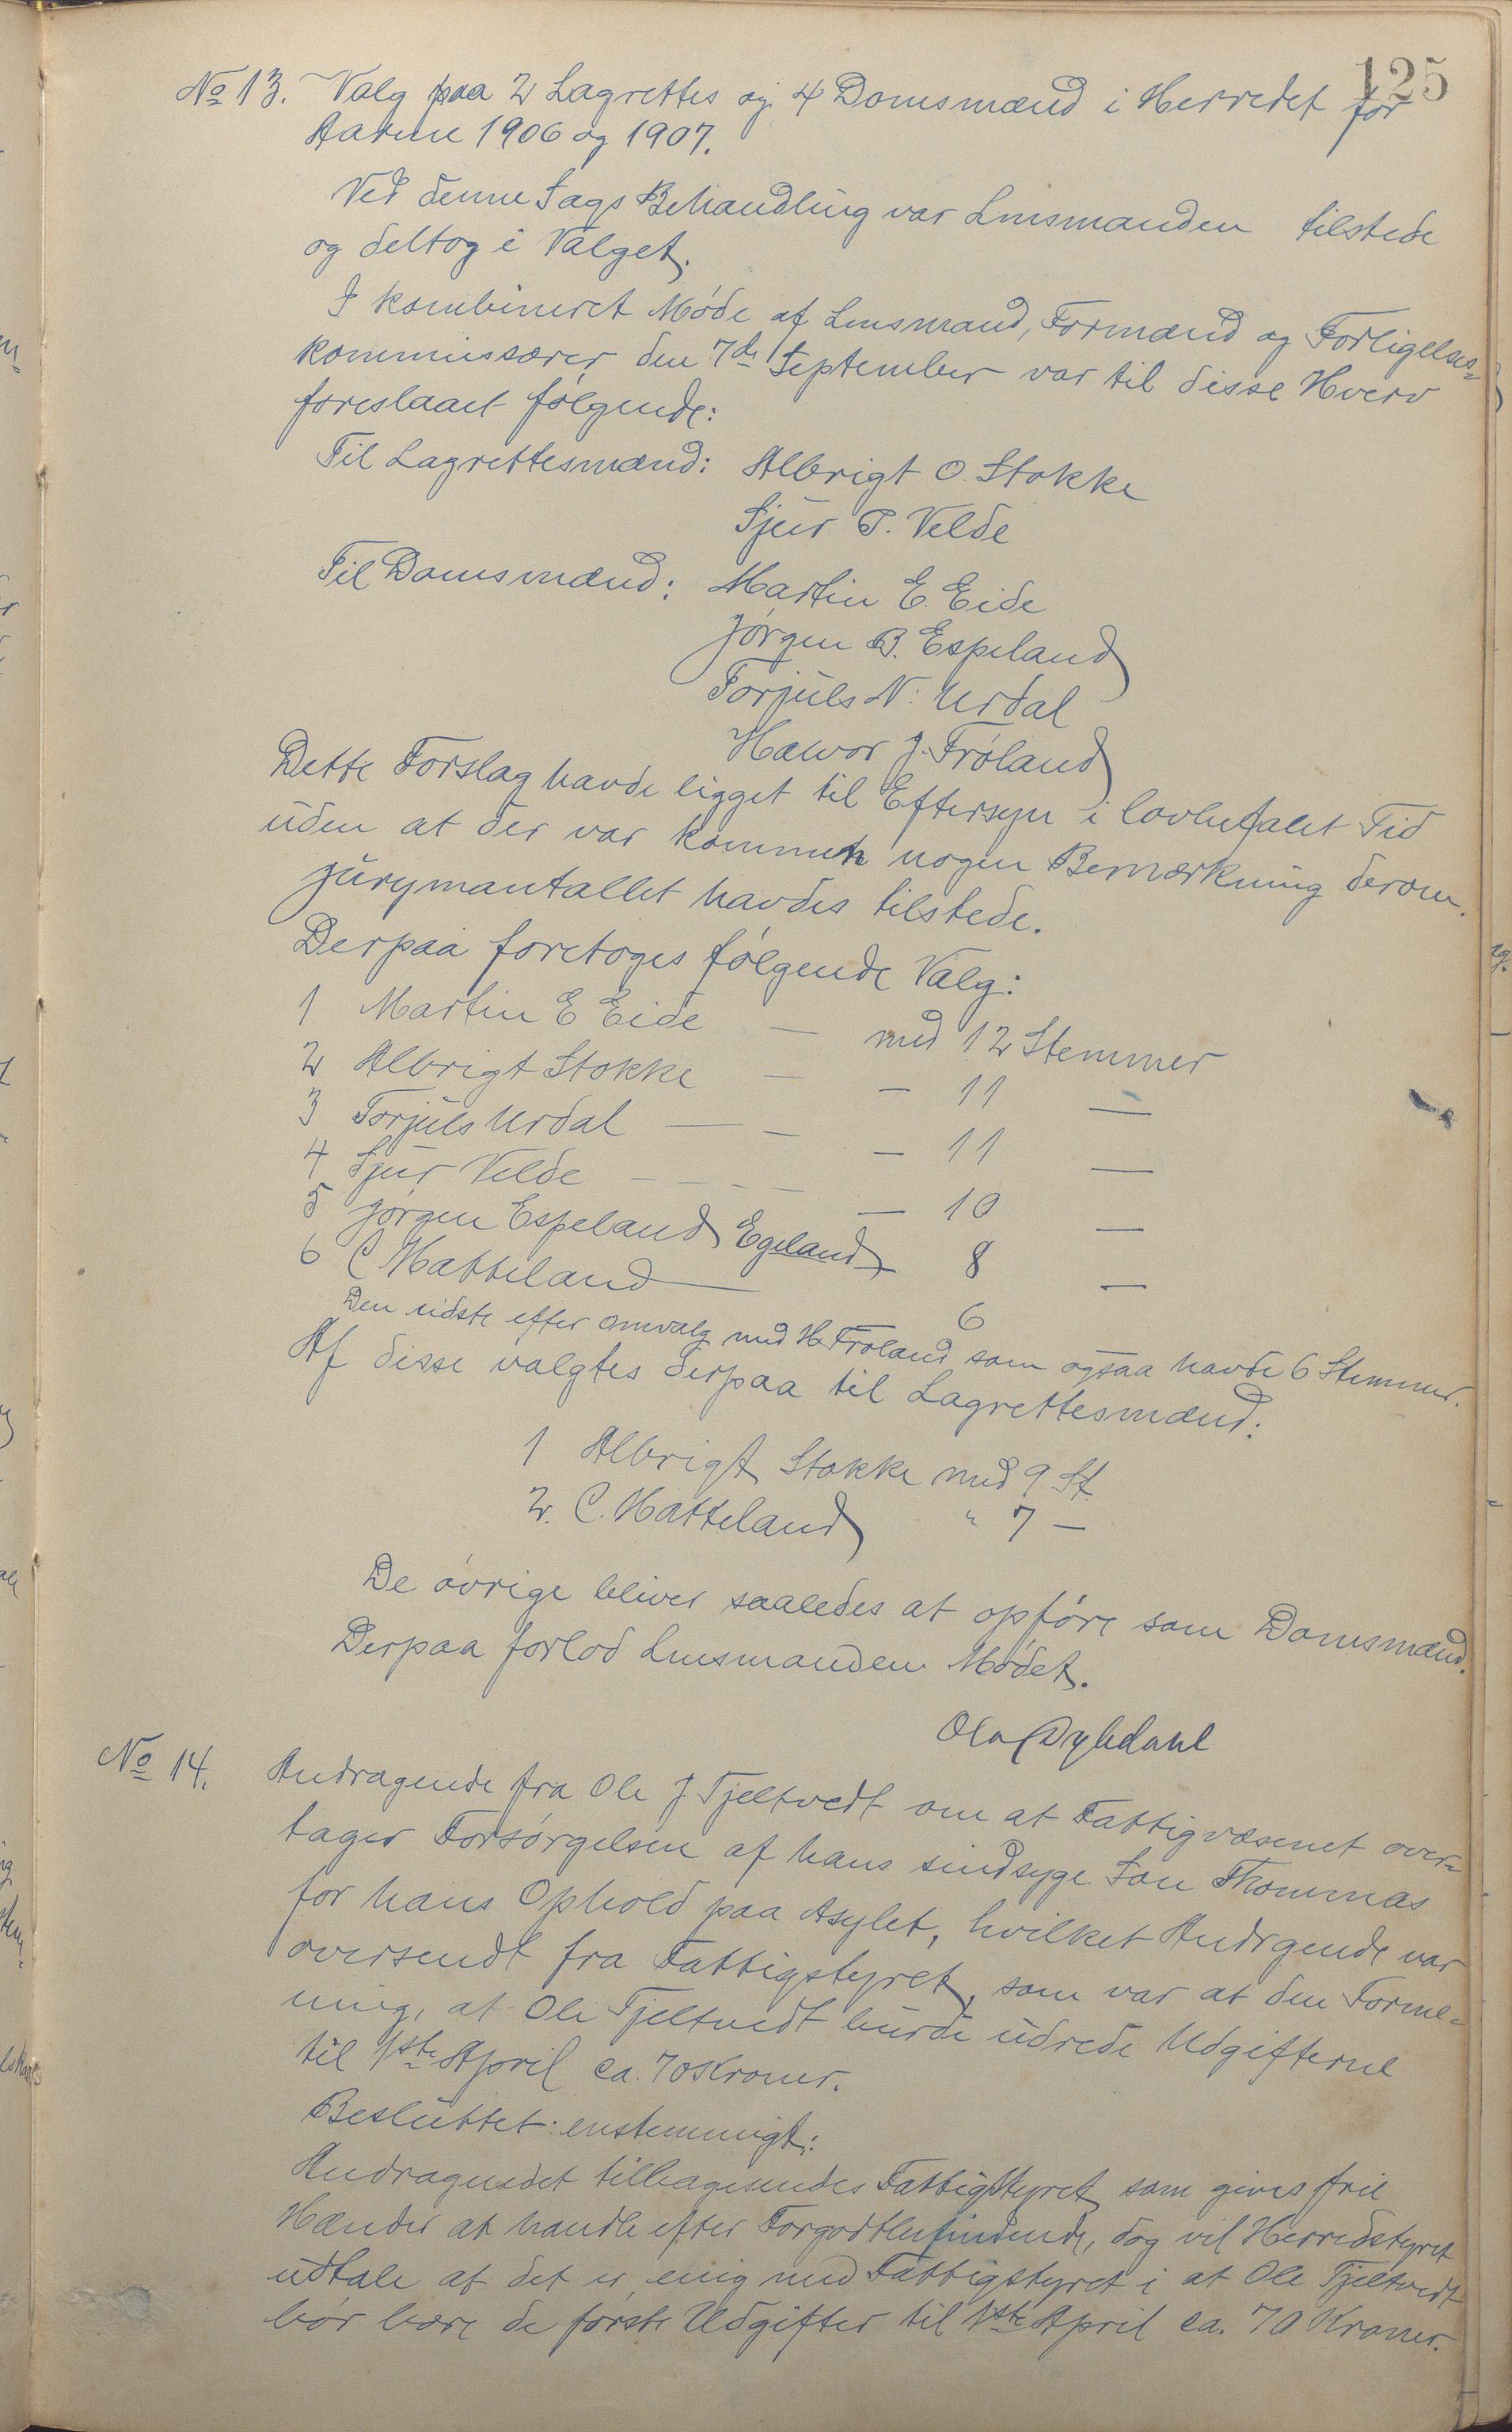 125
No 13. Valg paa 2 Lagrettes og 4 Domsmænd i Herredet for
Aarene 1906 og 1907.
Ved denne Sags Behandling var Lensmanden tilstede
og deltog i Valget.
I kombineret Møde af Lensmand, Formænd og Forligelses-
kommissærer den 7de September var til disse Hverv
foreslaaet følgende:
Til Lagrettesmænd: Albrigt O. Stokke
Sjur P. Velde
Til Domsmænd: Martin E. Eide
Jørgen B. Espeland
Torjuls N. Urdal
Halvor J. Frøland
Dette Forslag havde ligget til Eftersyn i lovbefalet Tid
uden at der var kommen nogen Bemærkning derom.
Jurymantallet havdes tilstede.
Derpaa foretoges følgende Valg:
1 Martin E Eide — med 12 Stemmer
2 Albrigt Stokke — — 11 —
3 Torjuls Urdal — — — 11 —
4 Sjur Velde — — — — — 10 —
5 Jørgen Espeland Egeland — 8 —
6 C Hatteland — 6
Den sidste efter Omvalg med H. Frøland som ogsaa havde 6 Stemmer.
Af disse valgtes derpaa til Lagrettesmænd:
1 Albrigt Stokke med 9 St.
2. C. Hatteland " 7 —
De øvrige bliver saaledes at opføre som Domsmænd.
Derpaa forlod Lensmanden Mødet.
Ola Dybdahl
No 14. Andragende fra Ole J Tjeltvedt om at Fattigvæsenet over-
tager Forsørgelsen af hans sindsyge Søn Thommas
for hans Ophold paa Asylet, hvilket Andrgende var
oversendt fra Fattigstyret, som var at den Forme-
ning, at Ole Tjeltvedt burde udrede Udgifterne
til 1ste April ca. 70 Kroner.
Besluttet: enstemmigt:
Andragendet tilbagesendes Fattigstyret som gives frie
Hænder at handle efter Forgodtbefindende, dog vil Herredstyret
udtale at det er enig med Fattigstyret i at Ole Tjeltvedt
bør bære de første Udgifter til 1ste April ca. 70 Kroner.